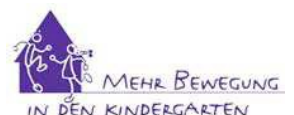 MEHR BEWEGUNG
IN DEN KINDERGARTEN